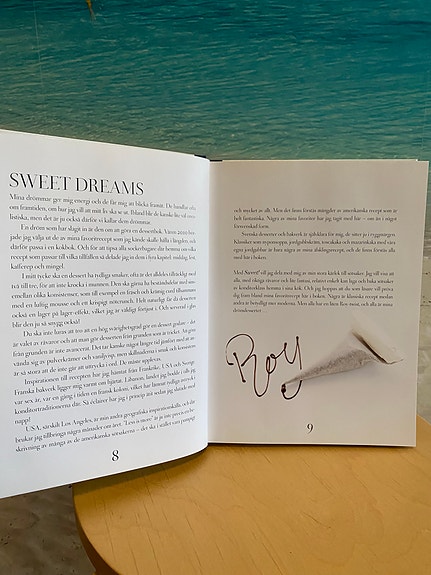 SWEET DREAMS
Mina drömmar ger mig energi och de får mig att blicka framåt. De handlar ofta
om framtiden, om hur jag vill att mitt liv ska se ut. Ibland blir de kanske lite väl orea-
listiska, men det är ju också därför vi kallar dem drömmar.
En dröm som har slagit in är den om att göra en dessertbok. Våren 2020 bör-
jade jag välja ut de av mina favoritrecept som jag kände skulle hålla i längden, och
därför passa i en kokbok. Och för att tipsa alla sockerbagare där hemma om vilka
recept som passar till vilka tillfällen så delade jag in dem i fyra kapitel: middag, fest,
kafferep och mingel.
I mitt tycke ska en dessert ha tydliga smaker, ofta är det alldeles tillräckligt med
två till tre, för att inte krocka i munnen. Den ska gärna ha beståndsdelar med
emellan olika konsistenser, som till exempel en fräsch och krämig curd tillsammans
med en luftig mousse och ett krispigt nötcrunch. Helt naturligt får du dessutom
också en lager på lager-effekt, vilket jag är väldigt förtjust i. Och serverad i glas
blir den ju så snygg också!
Du ska inte luras att tro att en hög svårighetsgrad gör en dessert godare – det
är valet av råvaror och att man gör desserten från grunden som är tricket. Att göra
från grunden är inte avancerat. Det tar kanske något längre tid jämfört med att an-
vända sig av pulverkräm och vaniljvisp, men skillnaderna i smak och konsistens
är så stora att de inte går att uttrycka i ord. De måste upplevas.
Inspirationen till recepten har jag hämtat från Frankrike, USA och Sverige.
Franska bakverk ligger mig varmt om hjärtat. Libanon, landet jag bodde i tills jag
var sex år, var en gång i tiden en fransk koloni, vilket har lämnat tydliga avtryck i
konditortraditionerna där. Så éclairer har jag i princip ätit sedan jag slutade med
napp!
USA, särskilt Los Angeles, är min andra geografiska inspirationskälla, och där
brukar jag tillbringa några månader om året. "Less is more" är ju inte precis en be-
skrivning av många av de amerikanska sötsakerna – det ska i stället vara pampigt
8
och mycket av allt. Men det finns förstås mängder av amerikanska recept som är
helt fantastiska. Några av mina favoriter har jag tagit med här – om än i något
försvenskad form.
Svenska desserter och bakverk är självklara för mig, de sitter ju i ryggmärgen.
Klassiker som toscatoppen, jordgubbskräm, toscakaka och mazarinkaka med varv
egna jordgubbar är bara några av mina älsklingsrecept, och de finns förstås alla
med i boken.
Med Sweet! vill jag dela med mig av min stora kärlek till sötsaker. Jag vill visa att
alla, med riktiga råvaror och lite fantasi, relativt enkelt kan laga och baka smaken
av konditoriklass hemma i sina kök. Och jag hoppas att du som läsare vill pröva
dig fram bland mina favoritrecept här i boken. Några är klassiska recept medan
andra är betydligt mer moderna. Men alla har en liten Roy-twist, och alla är mina
drömdesserter …
Roy
9